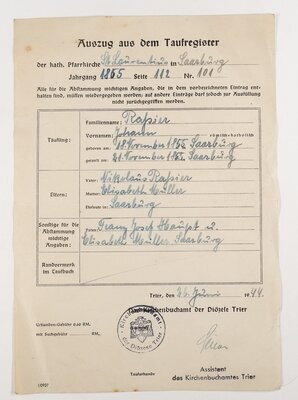 Auszug aus dem Taufregister
der kath. Pfarrkirche St. Laurentius in Saarburg
Jahrgang 1855 Seite 112 Nr. 101
Alle für die Abstammung wichtigen Angaben, die in dem vorbezeichneten Eintrag ent-
halten sind, müssen wiedergegeben werden; auf andere Einträge darf jedoch zur Ausfüllung
nicht zurückgegriffen werden.
Täufling:
Familienname: Rassier
Vornamen: Johann römisch-katholisch
geboren am: 18. November 1855 Saarburg
getauft am: 21. November 1855 Saarburg
Eltern:
Vater: Nikolaus Rassier
Mutter: Elisabeth Müller
Eheleute in Saarburg
Sonstige für die
Abstammung
wichtige
Angaben:
Paten: Franz Josef Haupt u.
Elisabeth Müller Saarburg
Randvermerk
im Taufbuch
Trier, den 26. Juni 1944
Kirchenbuchamt der Diözese Trier
Urkunden-Gebühr 0.60 RM.
mit Suchgebühr RM.
der Diözese Trier
Assistent
des Kirchenbuchamtes Trier
Tauferkunde